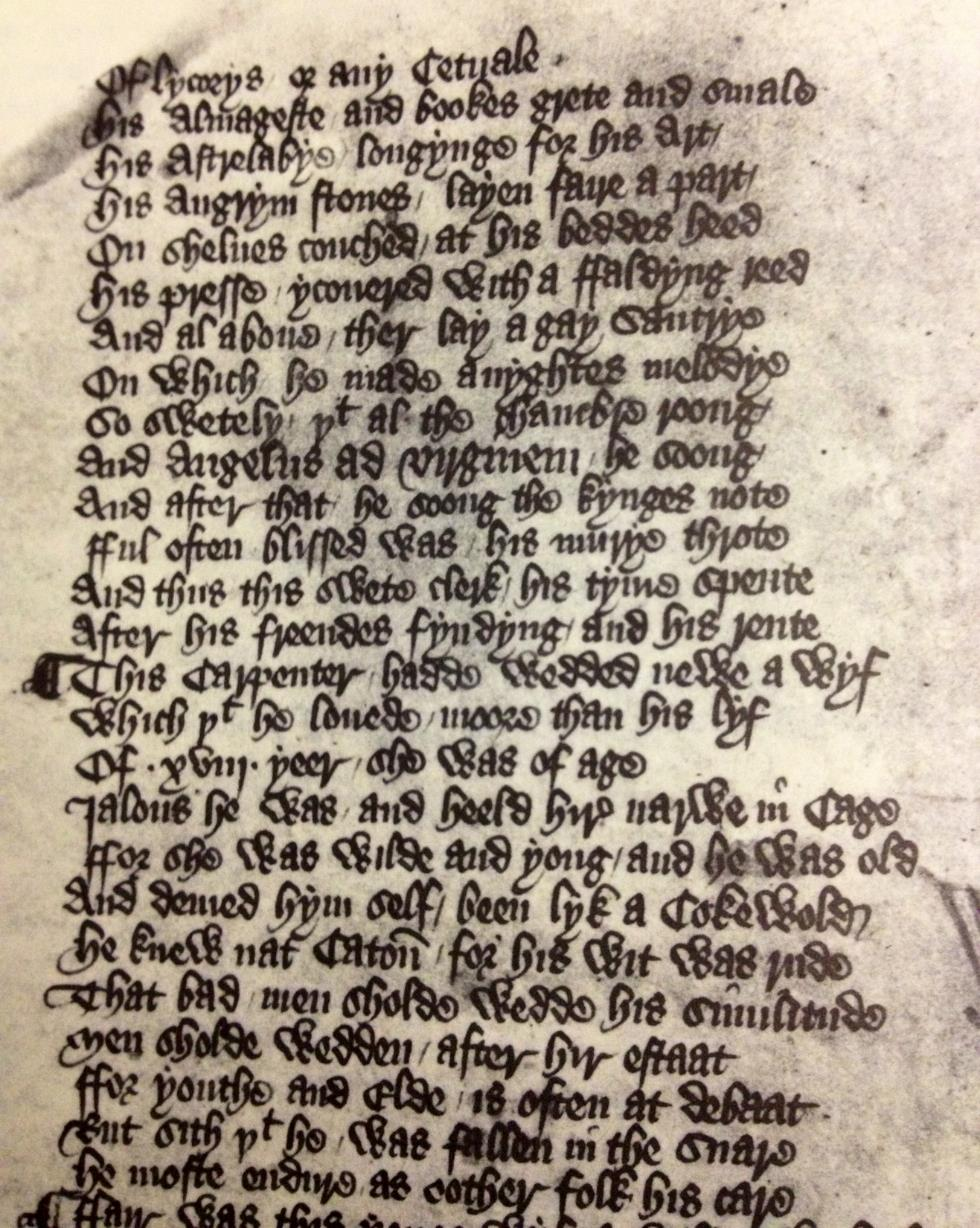 Of lycorys or any Cetuale .
His Almageste / and bookes grete and smale
His Astrelabye / longynge for his Art /
His Augrym stones / layen faire a part /
On shelues couched / at his beddes heed
His presse / ycouered with a ffaldyng reed
And al aboue / ther lay a gay Sautrye
On which / he made anyghtes melodye
So swetely / yt al the chambre roong /
And Angelus ad virginem / he soong /
And after that / he soong the kynges note
fful often blissed was / his murye throte
And thus this swete clerk / his tyme spente
After his freendes fyndyng / and his rente
¶ This Carpenter / hadde wedded newe a wyf
Which yt he louede / moore than his lyf
Of .xviij. yeer / she was of age
Jalous he was / and heeld hire narwe in Cage
ffor she was wilde and yong / and he was old
And demed hym self / been lyk a Cokewold
He knew nat Catoun / for his wit was rude
That bad / men sholde wedde his similitude
Men sholde wedden / after hir estaat
ffor youthe and Elde / is often at debaat
But sith yt he / was fallen in the Snare
He moste endure / as oother folk his care
¶ ffair was this yonge